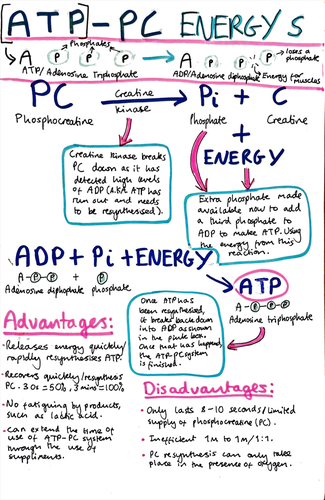 ATP-PC ENERGY S
Phosphates
loses a phosphate
A P P P → A P P P
ATP/Adenosine Triphosphate
ADP/Adenosine diphosphate
Energy for muscles
PC Creatine Kinase Pi + C
Phosphocreatine
Phosphate
Creatine
+
ENERGY
Creatine Kinase breaks
PC down as it has
detected high levels
of ADP (a.k.a ATP has
run out and needs
to be resynthesised).
Extra phosphate made
available now to add
a third phosphate to
ADP to make ATP. Using
the energy from this
reaction.
ADP + Pi + ENERGY
A-P-P + P
Adenosine diphosphate phosphate
ATP
A-P-P-P
Adenosine triphosphate
Once ATP has
been resynthesised,
it breaks back down
into ADP as shown
in the pink box.
Once that has happened,
the ATP-PC system
is finished.
Advantages:
• Releases energy quickly/
rapidly resynthesises ATP.
• Recovers quickly/resynthesis
PC. 30s = 50%, 3 mins = 100%
• No fatiguing by products,
such as lactic acid.
• Can extend the time of
use of ATP-PC system
through the use of
suppliments.
Disadvantages:
• Only lasts 8-10 seconds/limited
supply of phosphocreatine (PC).
• Inefficient 1m to 1m/1:1.
• PC resynthesis can only take
place in the presence of oxygen.